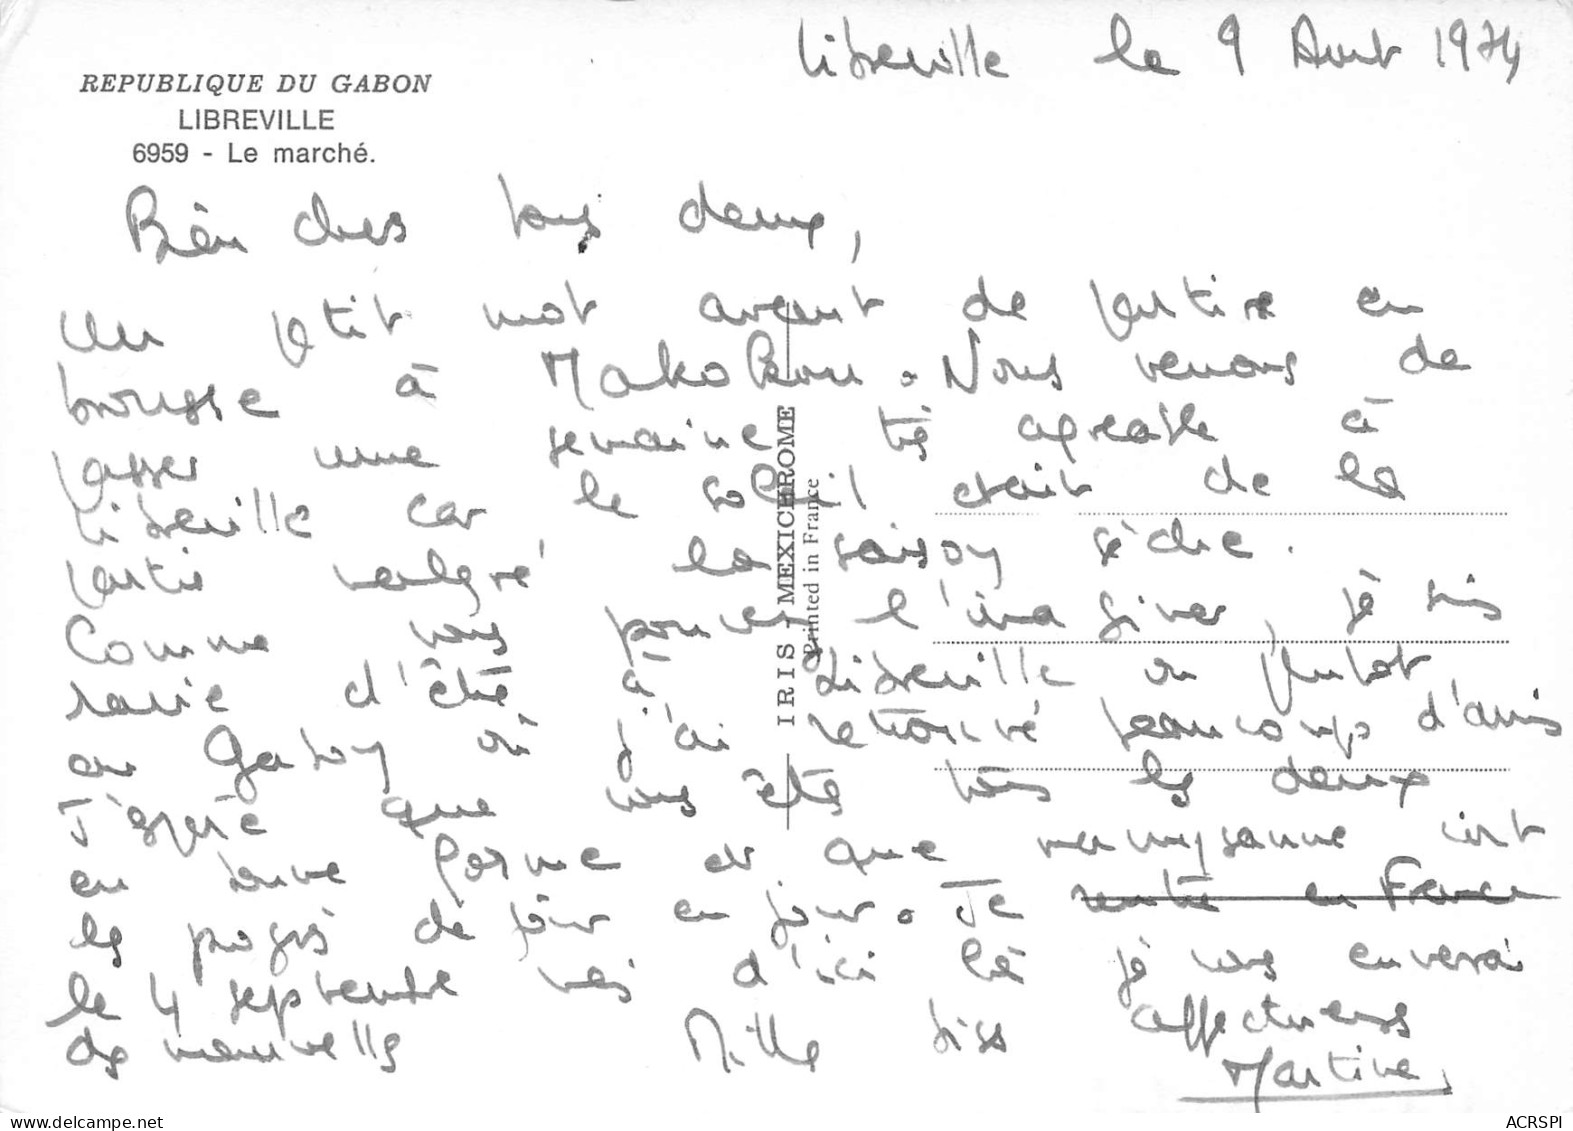 Libreville le 9 Août 1974
REPUBLIQUE DU GABON
LIBREVILLE
6959 - Le marché.
Bien chers tous deux,
Un ptit mot avant de partir en
brousse à Makokou. Nous venons de
passer une semaine très agréable à
Libreville car le soleil était de la
partie malgré la saison sèche.
Comme vous pouvez l'imaginer, je suis
ravie d'être à Libreville ou plutôt
au Gabon où j'ai retrouvé beaucoup d'amis
J'espère que vous êtes tous les deux
en bonne forme et que
les progrès de jour en jour. Je rentre en France
le 4 septembre mais d'ici là je vous enverrai
des nouvelles Mille biss affectueuses
Martine
IRIS MEXICHROME
Printed in France
delcampe.net
ACRSPI